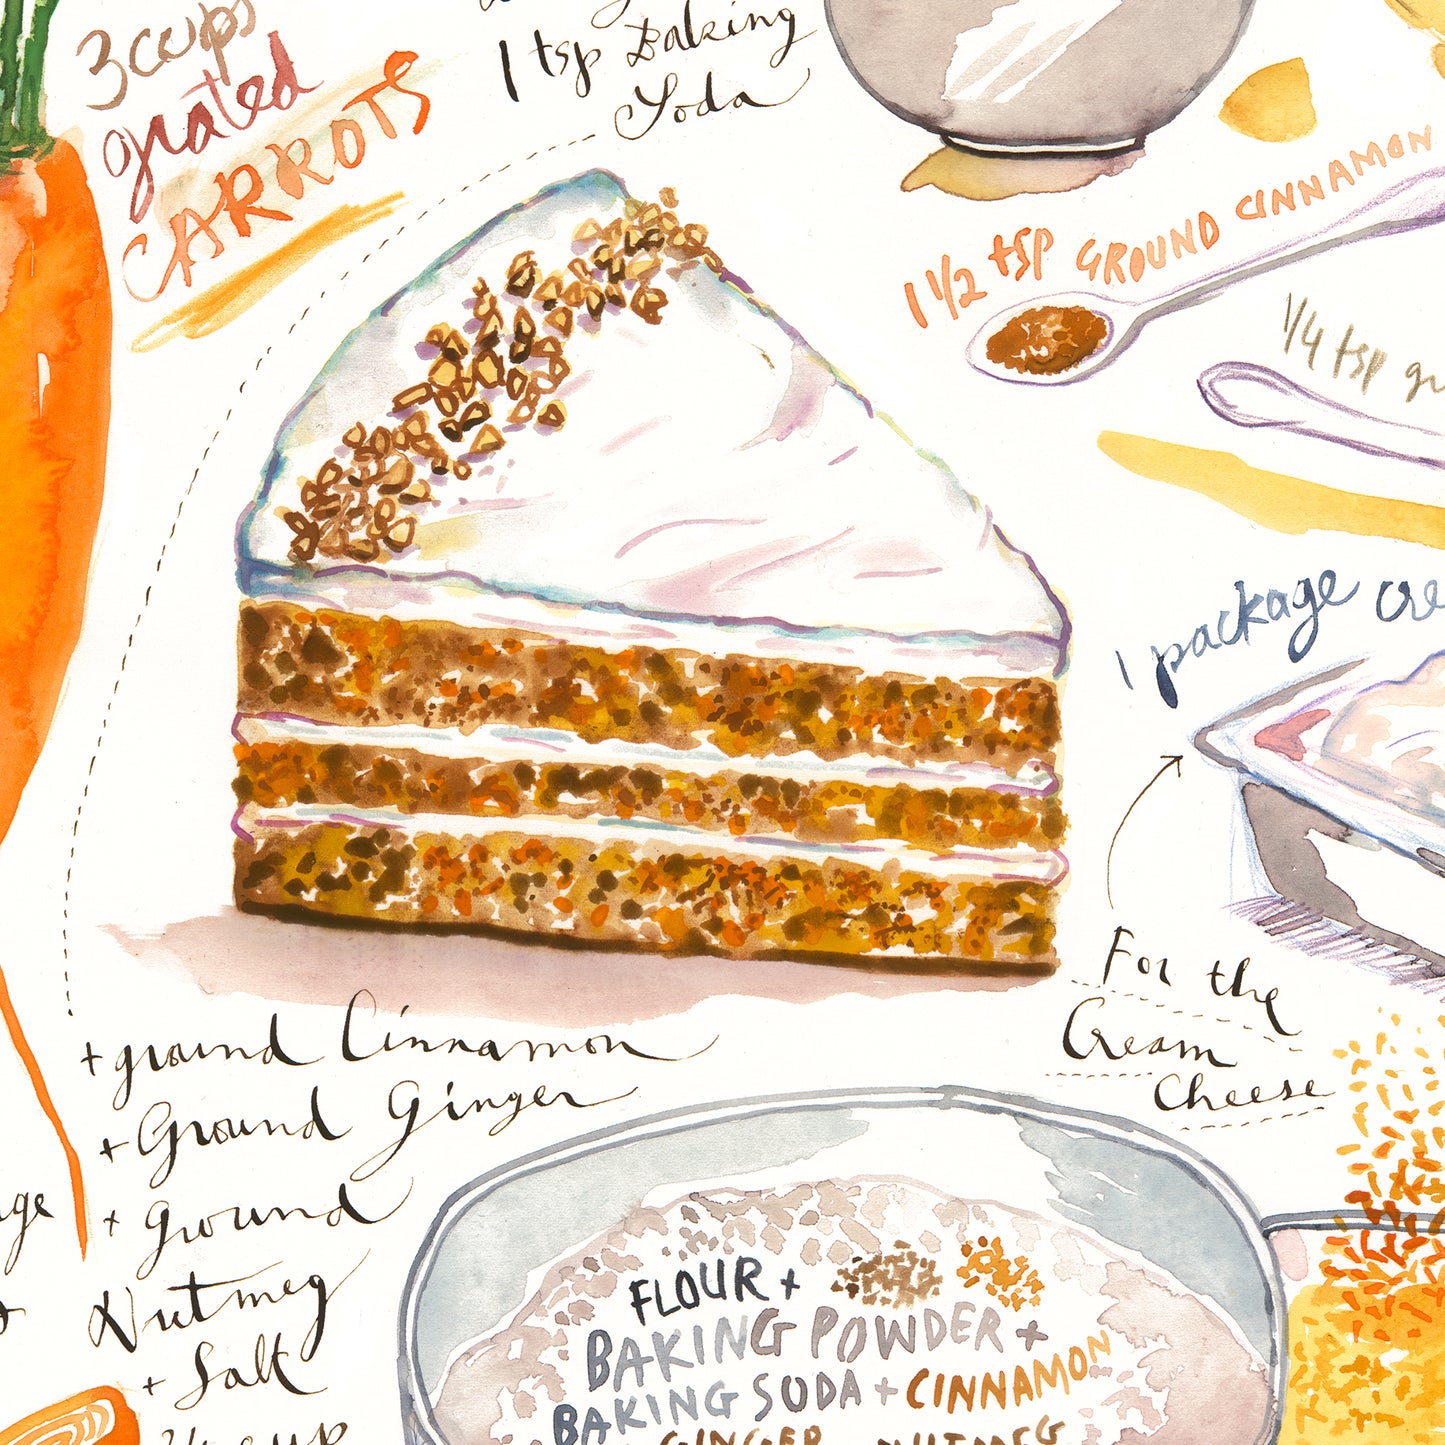 3 cups
grated
CARROTS
1 tsp Baking
Soda
1 1/2 tsp GROUND CINNAMON
1/4 tsp
1 package cre
For the
Cream
Cheese
+ ground Cinnamon
+ Ground Ginger
+ Ground
Nutmeg
+ Salt
cup
FLOUR +
BAKING POWDER +
BAKING SODA + CINNAMON
GINGER NUTMEG